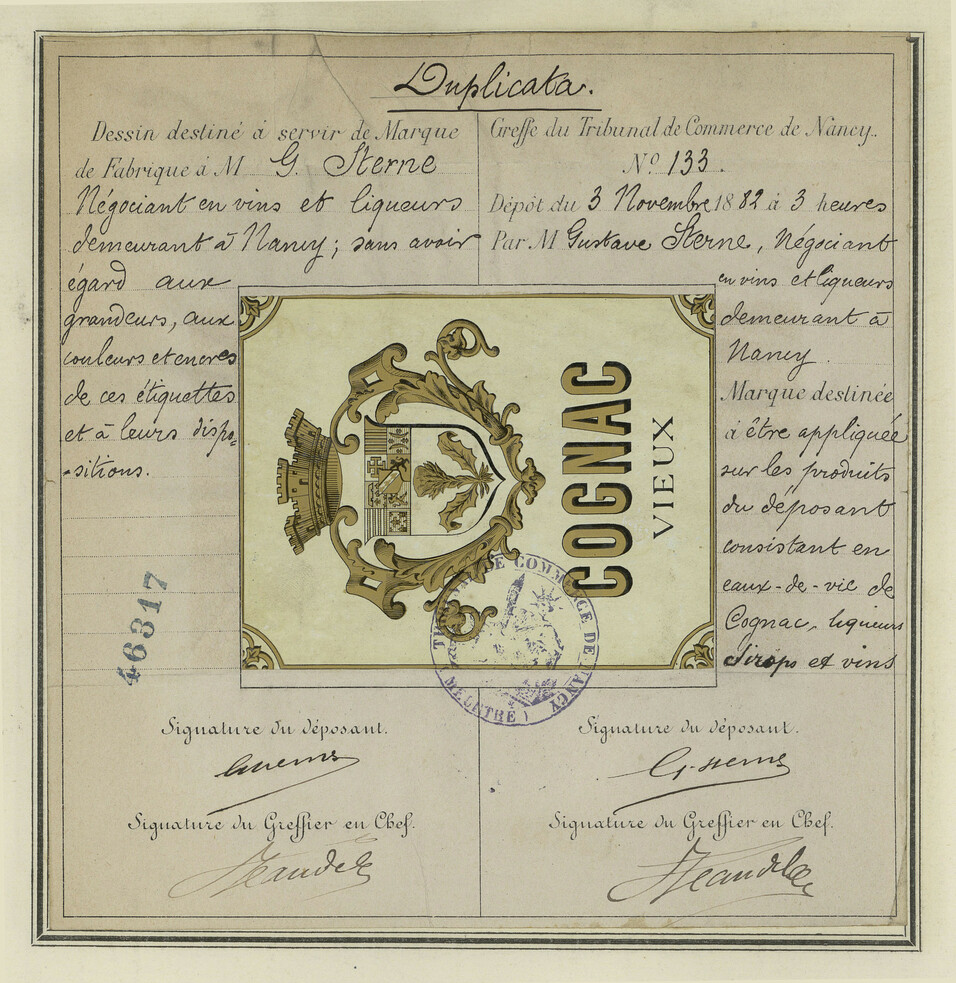 Duplicata.
Dessin destiné à servir de Marque
de Fabrique à M G. Sterne
Négociant en vins et liqueurs
demeurant à Nancy; sans avoir
égard aux
grandeurs, aux
couleurs et encres
de ces étiquettes
et à leurs dispo-
-sitions.
46317
Greffe du Tribunal de Commerce de Nancy.
No. 133.
Dépôt du 3 Novembre 1882 à 3 heures
Par M Gustave Sterne, Négociant
en vins et liqueurs
demeurant à
Nancy.
Marque destinée
à être appliquée
sur les produits
du déposant
consistant en
eaux-de-vie de
Cognac, liqueurs
Sirops et vins
COGNAC
VIEUX
TRIBUNAL DE COMMERCE DE NANCY
(MEURTHE)
Signature du déposant.
Signature du Greffier en Chef.
Signature du déposant.
G. Sterne
Signature du Greffier en Chef.